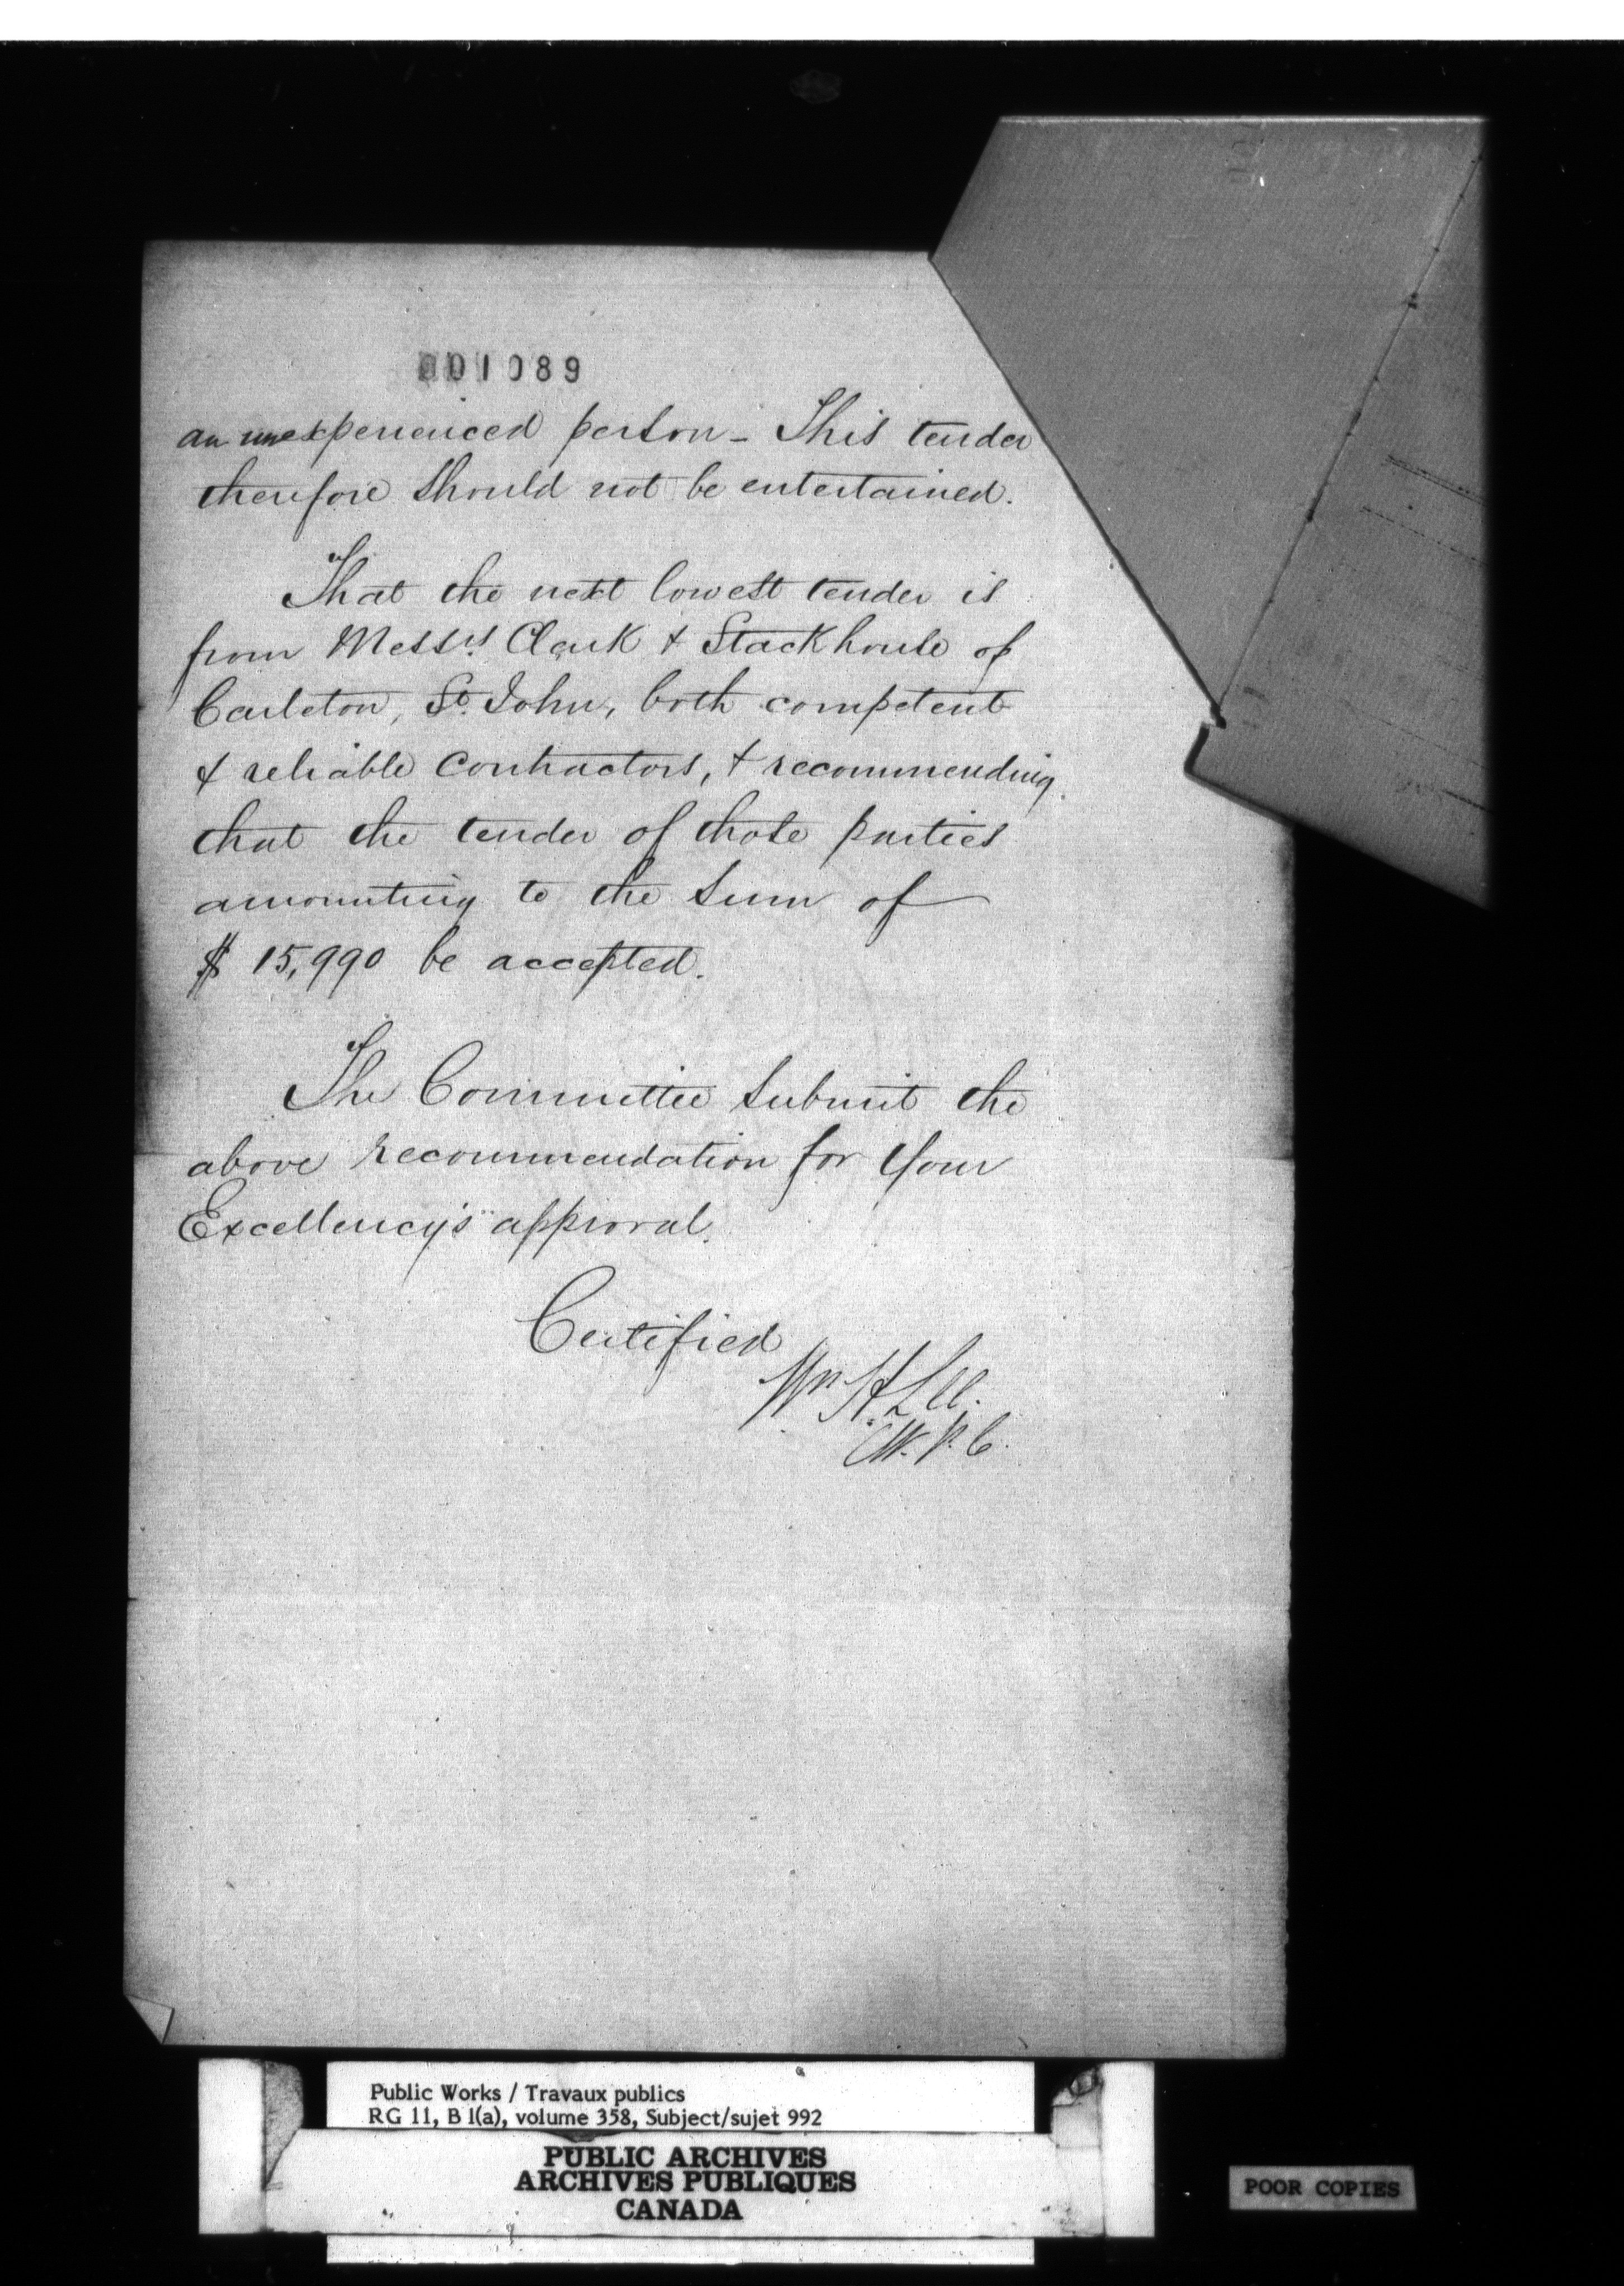 001089
an unexperienced person - This tender
therefore should not be entertained.
That the next lowest tender is
from Messrs Clark & Stackhouse of
Carleton, St. John, both competent
& reliable contractors, & recommending
that the tender of those parties
amounting to the sum of
$ 15,990 be accepted.
The Committee submit the
above recommendation for Your
Excellency's approval.
Certified
Wm H. Lee.
C.P.C.
Public Works / Travaux publics
RG 11, B 1(a), volume 358, Subject/sujet 992
PUBLIC ARCHIVES
ARCHIVES PUBLIQUES
CANADA
POOR COPIES